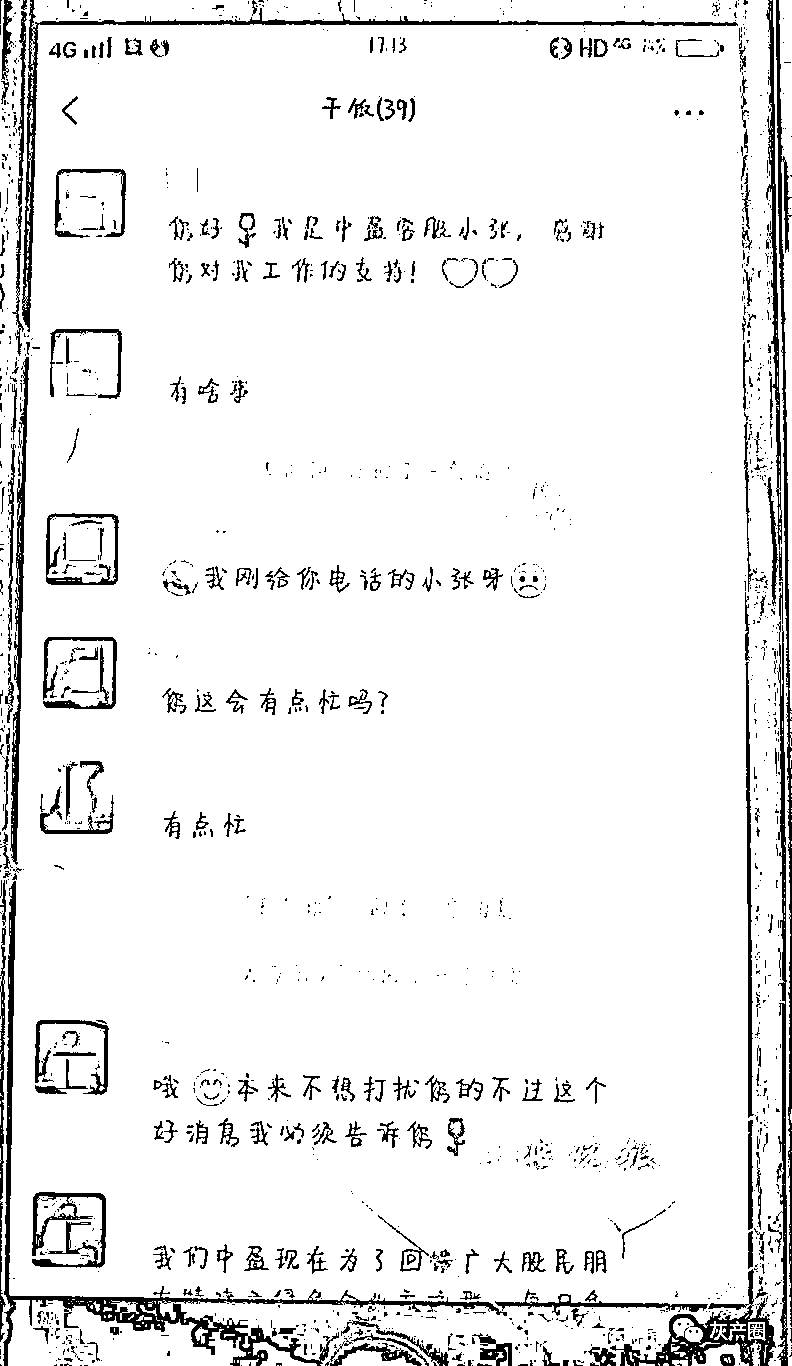 4G 17:13 HD 4G
干饭(39)
您好 我是中盈客服小张，感谢
您对我工作的支持！
有啥事
我刚给你电话的小张呀
您这会有点忙吗？
有点忙
哦 本来不想打扰您的不过这个
好消息我必须告诉您
我们中盈现在为了回馈广大股民朋
灰产圈